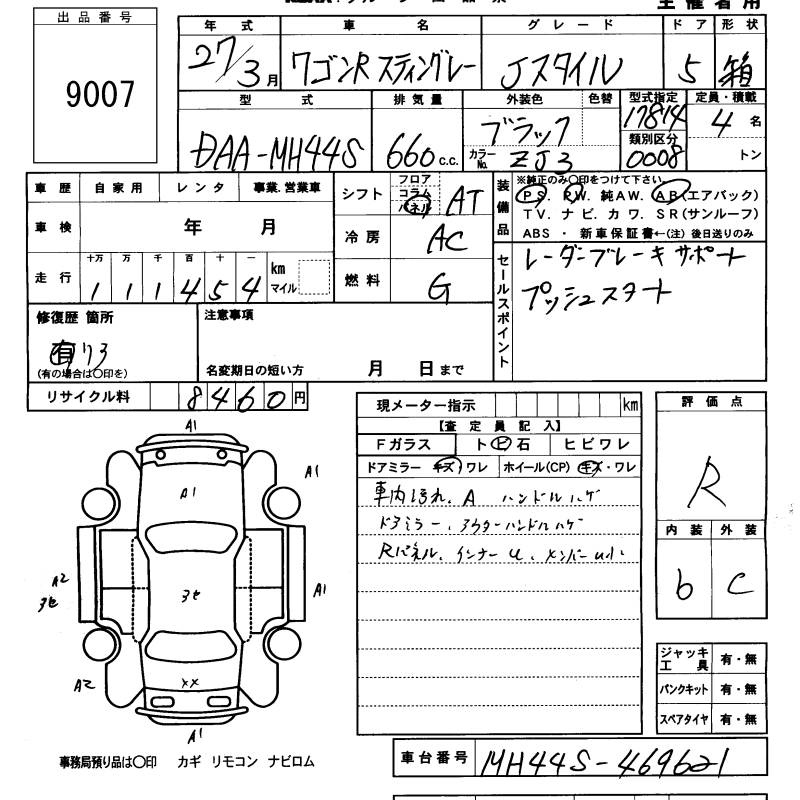 主催者用
出品番号
9007
年式 車名 グレード ドア 形状
27/3月 ワゴンR スティングレー Jスタイル 5 箱
型式 排気量 外装色 色替 型式指定 定員・積載
DAA-MH44S 660c.c. ブラック 17814 4名
カラーNo. ZJ3 類別区分 0008 トン
車歴 自家用 レンタ 事業.営業車
車検 年 月
走行 十万 万 千 百 十 一
1 1 1 4 5 4 km マイル
シフト フロア コラム パネル AT
冷房 AC
燃料 G
装備品 ※純正のみ〇印をつけて下さい。
PS. PW. 純AW. AB(エアバック)
TV. ナビ. カワ. SR(サンルーフ)
ABS ・ 新車保証書←(注) 後日送りのみ
セールスポイント
レーダーブレーキサポート
プッシュスタート
修復歴 箇所
有り3
(有の場合は〇印を)
注意事項
名変期日の短い方 月 日まで
リサイクル料 8460円
現メーター指示 km
【査定員記入】
Fガラス トビ石 ヒビワレ
ドアミラー キズ ワレ ホイール(CP) キズ・ワレ
車内汚れ、A ハンドルハゲ
ドアミラー、アウターハンドルハゲ
Rパネル、インナーU、メンバーU小
評価点
R
内装 外装
b C
A1
A1
A1
A2
3セ
3セ
A1
A2
××
A1
ジャッキ工具 有・無
パンクキット 有・無
スペアタイヤ 有・無
事務局預り品は〇印 カギ リモコン ナビロム
車台番号 MH44S-469621